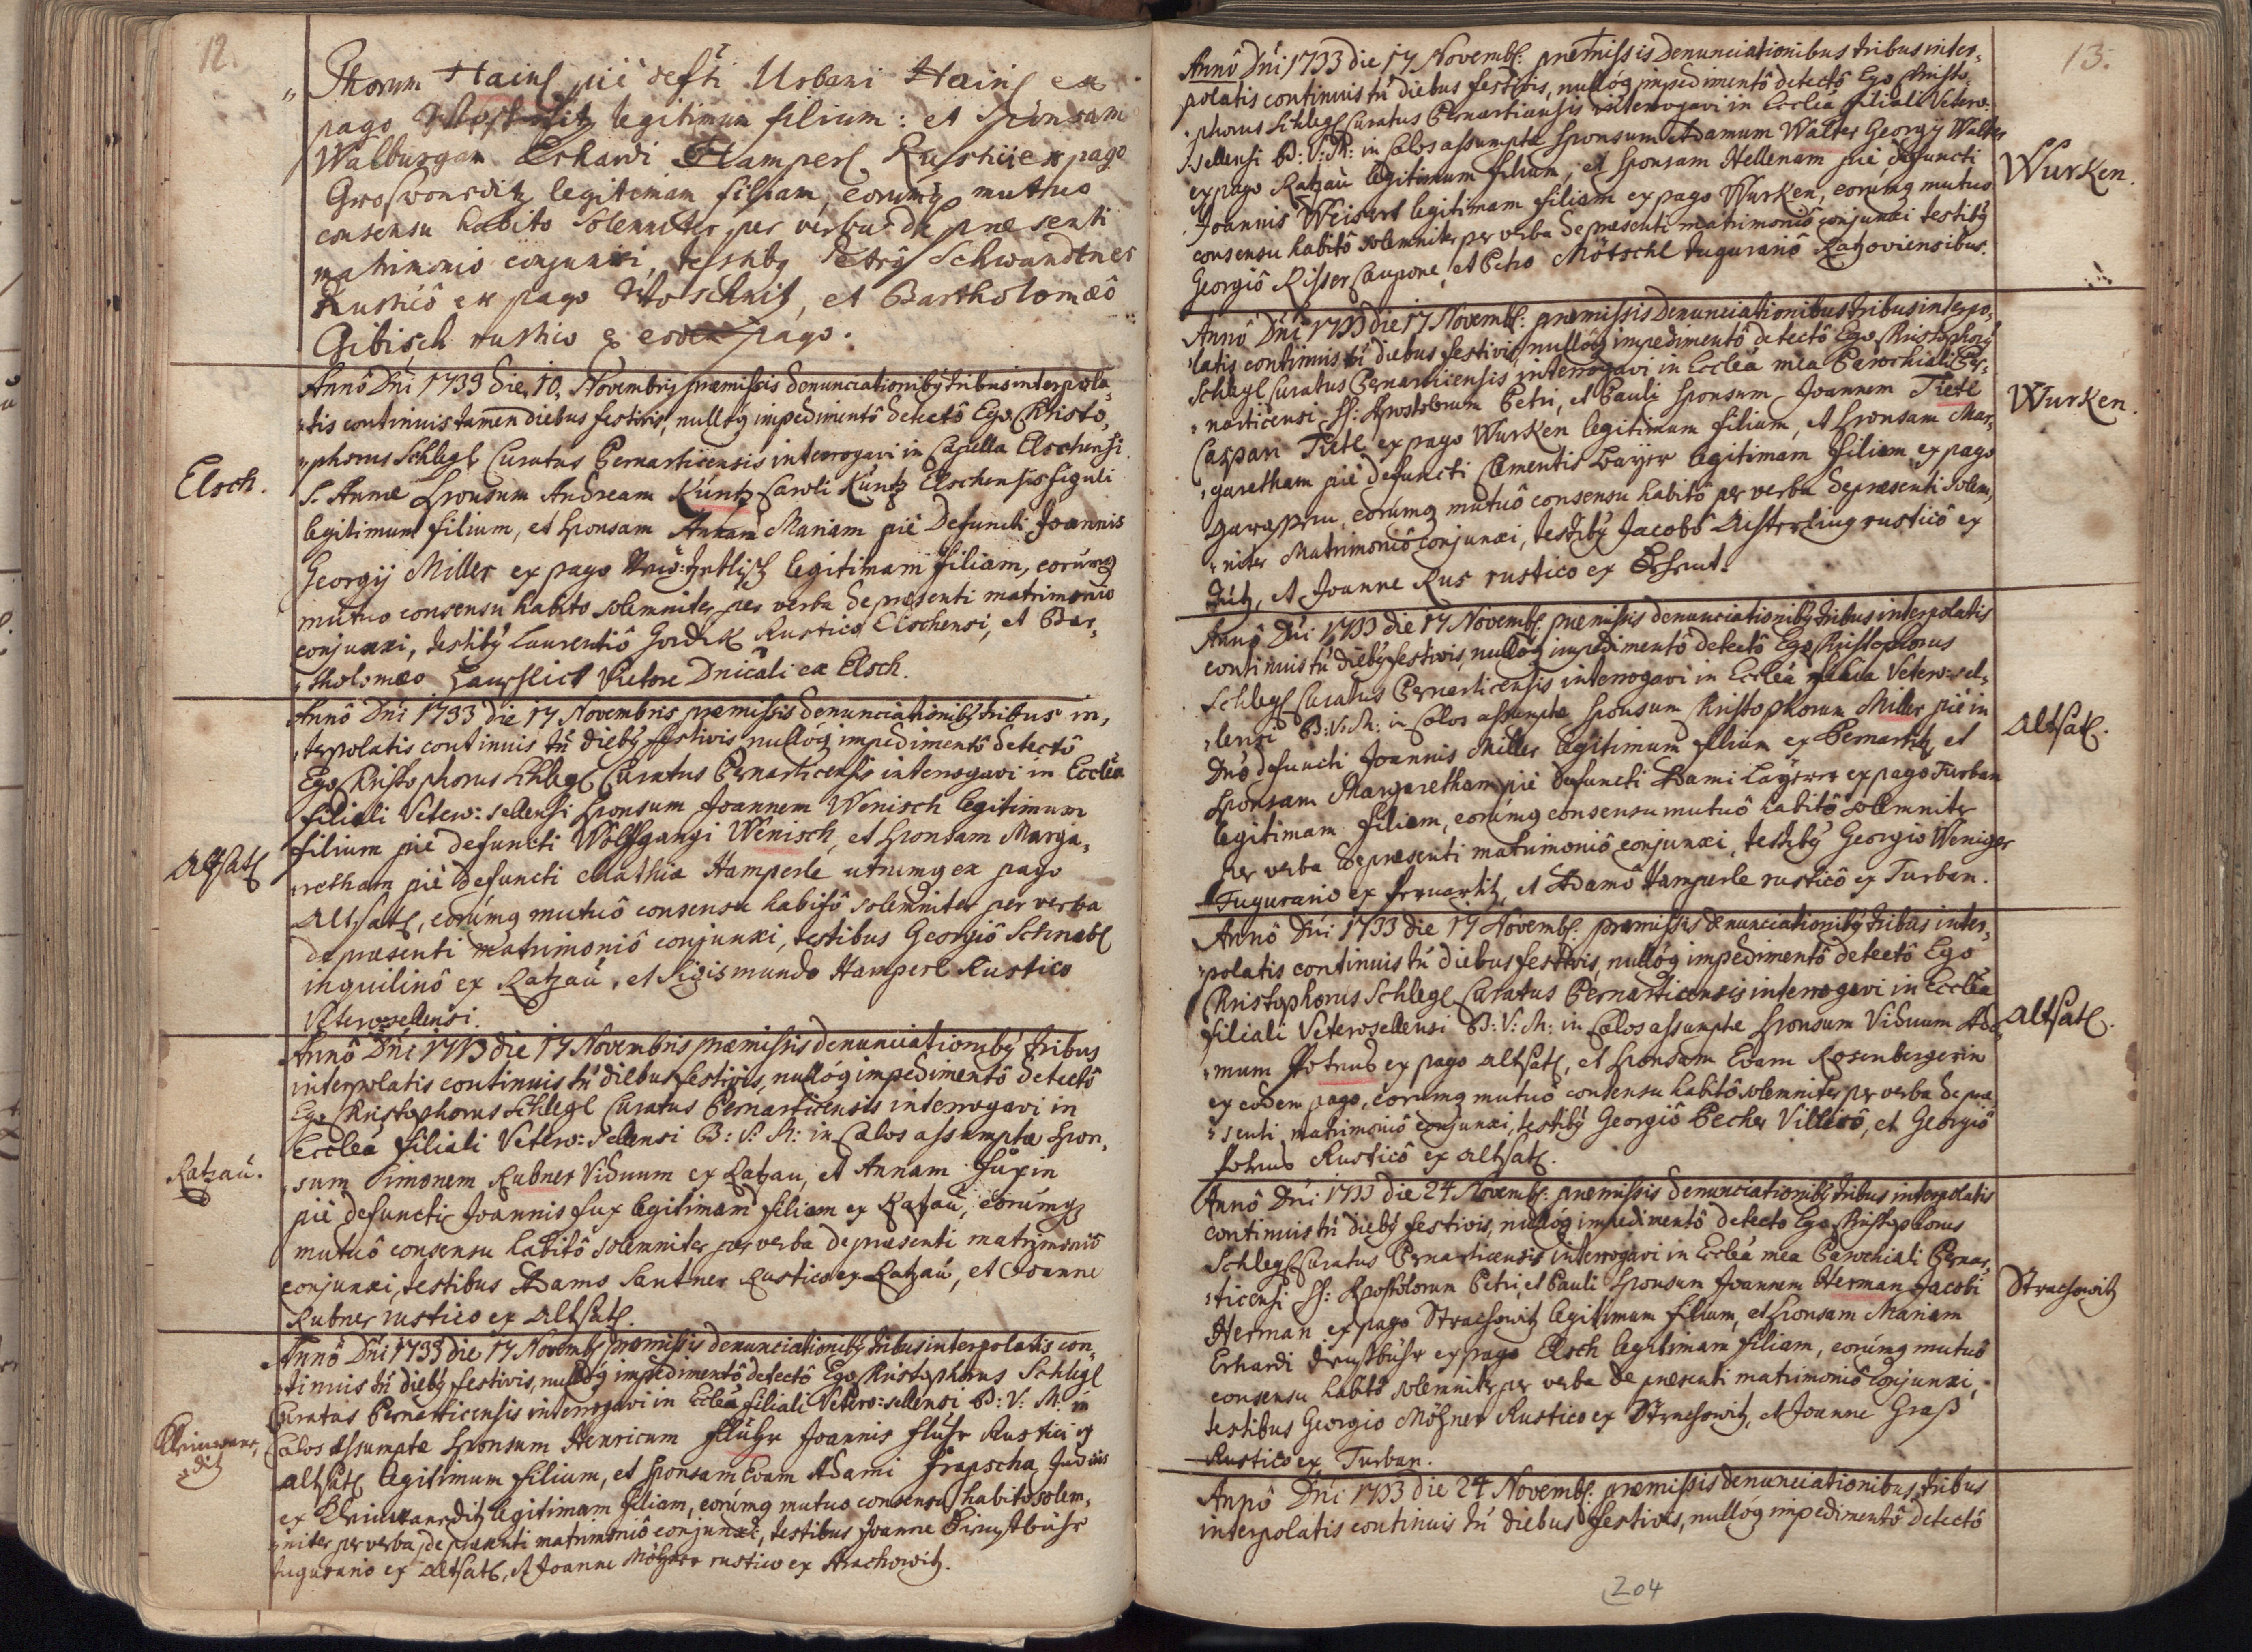 12.
„ Thorum Hainl pie defti Urbani Hainl ex
pago legitimum filium: et sponsam
Walburgam Erhardi Hamperl Rustici ex pago
Groswoneditz legitimam filiam, eorumq mutuo
consensu habito solemniter per verba de prae senti
matrimonio conjunxi, testibq Petrô Schwandtner
Rusticô ex pago Woschnitz, et Bartholomaeô
Gibisch rustico ex eodem pago.
Elsch.
Annô Dni 1733 die 10. Novembris praemissis denunciationibq tribus interpola„
„tis continuis tamen diebus festivis, nullóq impedimentô detectô Ego Christo„
„phorus Schlegl Curatus Pernarticensis interrogavi in Capella Elschensi
S. Annae Sponsum Andream Küntz Caroli Küntz Elschensis figuli
legitimum filium, et Sponsam Annam Mariam pie Defuncti Joannis
Georgij Miller ex pago legitimam filiam, eorumq
mutuo consensu habito solemniter per verba de praesenti matrimonio
conjunxi, testibq Laurentiô Gordik Rustico Elschensi, et Bar„
„tholomaeo Vietore Dnicali ex Elsch.
Altsatl
Annô Dni 1733 die 17 Novembris praemissis denunciationibq tribus in„
„terpolatis continuis tñ diebq festivis nullóq impedimentô detectô
Ego Christophorus Schlegl Curatus Pernarticensis interrogavi in Ecclea
filiali Vetero: sellensi Sponsum Joannem Wenisch legitimum
filium pie defuncti Wolffgangi Wenisch, et Sponsam Marga„
„retham pie defuncti Mathiae Hamperle utrumq ex pago
Altsatl, eorumq mutuô consensu habitô solemniter per verba
de praesenti matrimoniô conjunxi, testibus Georgiô Schnabl
inquilinô ex Ratzau, et Sigismundo Hamperl Rustico
Veterosellensi.
Ratzau.
Annô Dni 1733 die 17 Novembris praemissis denunciationibq tribus
interpolatis continuis tñ diebus festivis, nullóq impedimentô detectô
Ego Christophorus Schlegl Curatus Pernarticensis interrogavi in
Ecclea filiali Vetero: sellensi B: V: M: in Caelos assumptae Spon„
„sum Simonem Rubner Viduum ex Ratzau, et Annam Fuxin
pie defuncti Joannis Fux legitimam filiam ex Ratzau, eorumq
mutuô consensu habitô solemniter per verba de praesenti matrimoniô
conjunxi, testibus Adamo Santner Rustico ex Ratzau, et Joanne
Rubner rustico ex Altsatl.
Annô Dni 1733 die 17 Novembq praemissis denunciationibq tribus interpolatis con„
„tinuis tñ diebq festivis, nullóq impedimentô detectô Ego Christophorus Schlegl
Curatus Pernarticensis interrogavi in Ecclea filiali Vetero: sellensi B: V: M: in
Caelos assumptae Sponsum Henricum Flühr Joannis Flühr Rustici ex
Altsatl legitimum filium, et Sponsam Evam Adami
ex legitimam filiam, eorumq mutuo consensu habito solem„
„niter per verba de praesenti matrimoniô conjunxi, testibus Joanne
tugurario ex Altsatl, et Joanne rustico ex Strachowitz.
13.
Annô Dni 1733 die 17 Novembq: praemissis Denunciationibus tribus inter„
polatis continuis tñ diebus festivis, nullóq impedimentô detectô Ego Christo„
„phorus Schlegl Curatus Pernarticensis interrogavi in Ecclea filiali Vetero:
„sellensi B: V: M: in Caelos assumptae Sponsum Adamum Walter Georgij Walter
ex pago Ratzau legitimum filium, et Sponsam Hellenam pie defuncti
Joannis Weisert legitimam filiam ex pago Wurken, eorumq mutuo
consensu habitô solemniter per verba de praesenti matrimoniô conjunxi testibq
Georgiô Risser Caupone, et Petro Mötschl tugurariô Ratzoviensibus.
Wurken.
Annô Dni 1733 die 17 Novembq: praemissis Denunciationibus tribus interpo„
„latis continuis tñ diebus festivis, nullóq impedimentô detectô Ego Christophorq
Schlegl Curatus Pernarticensis interrogavi in Ecclea mea Parochiali Per„
„narticensi SS: Apostolorum Petri, et Pauli Sponsum Joannem Tietl
Caspari Tietl ex pago Wurken legitimum filium, et Sponsam Mar„
„garetham pie defuncti Clementis Bayer legitimam filiam ex pago
eorumq mutuô consensu habitô per verba de praesenti solem„
„niter Matrimoniô conjunxi, testibq Jacobô rusticô ex
et Joanne Rus rustico ex
Wurken.
Annô Dni 1733 die 17 Novembq: praemissis denunciationibq tribus interpolatis
continuis tñ diebq festivis, nullóq impedimentô detectô Ego Christophorus
Schlegl Curatus Pernarticensis interrogavi in Ecclea filiali Vetero: sel„
„lensi B: V: M: in Caelos assumptae Sponsum Christophorum Miller pie in
Dnô defuncti Joannis Miller legitimum filium ex Pernartitz, et
Sponsam Margaretham pie defuncti Adami ex pago Turban
legitimam filiam, eorumq consensu mutuô habitô solemniter
per verba de praesenti matrimoniô conjunxi, testibq Georgio Weniger
Tugurario ex Pernartitz, et Adamô Hamperle rusticô ex Turban.
Altsatl.
Annô Dni 1733 die 17 Novembq: praemissis denunciationibq tribus inter„
„polatis continuis tñ diebus festivis, nullóq impedimentô detectô Ego
Christophorus Schlegl Curatus Pernarticensis interrogavi in Ecclea
filiali Veterosellensi B: V: M: in Caelos assumptae Sponsum Viduum Ada„
„mum ex pago Altsatl, et Sponsam Evam Rosenbergerin
ex eodem pago, eorumq mutuô consensu habitô solemniter per verba de prae„
„senti matrimoniô conjunxi, testibq Georgiô Pecher Villicô, et Georgiô
Rusticô ex Altsatl.
Altsatl.
Annô Dni 1733 die 24 Novembq: praemissis denunciationibq tribus interpolatis
continuis tñ diebq festivis, nullóq impedimentô detecto Ego Christophorus
Schlegl Curatus Pernarticensis interrogavi in Ecclea mea Parochiali Pernar„
„ticensi SS: Apostolorum Petri, et Pauli Sponsum Joannem Herman Jacobi
Herman ex pago Strachowitz legitimum filium, et Sponsam Mariam
Erhardi ex pago Elsch legitimam filiam, eorumq mutuô
consensu habitô solemniter per verba de praesenti matrimoniô conjunxi,
testibus Georgio Rustico ex Strachowitz, et Joanne Graß
Rustico ex Turban.
Strachowitz
Annô Dni 1733 die 24 Novembq: praemissis denunciationibus tribus
interpolatis continuis tñ diebus festivis, nullóq impedimentô detectô
204